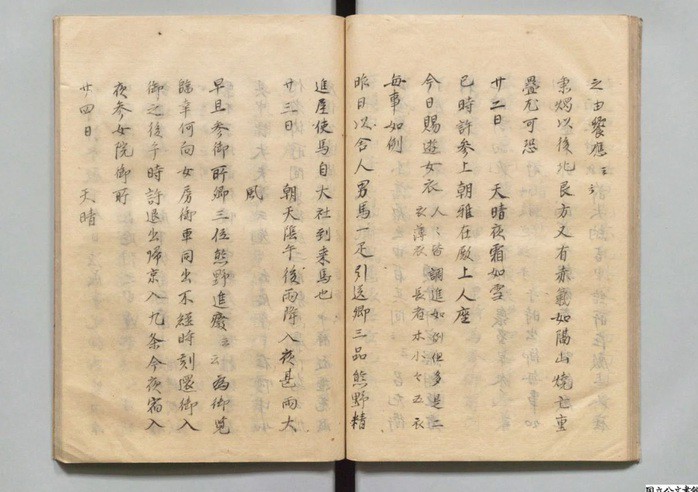 之由饗應云云
秉燭以後北艮方又有赤氣如隔山燒亡重
疊尤可恐
廿二日　天晴夜霜如雪
巳時許参上朝雅在殿上人座
今日賜遊女衣 人〻皆調進如例但多是二
衣薄衣 長者木小〻五衣
毎事如例
昨日以舎人男馬一疋引送卿三品熊野精
進屋使馬自大社到来馬也
廿三日　朝天陰午後雨降入夜甚雨大
風
早旦参御所卿三位熊野進發云云為御覧
臨幸何向女房御車同出不經時刻還御入
御之後午時許退出帰京入九条今夜宿入
夜参女院御所
廿四日　天晴
国立公文書館